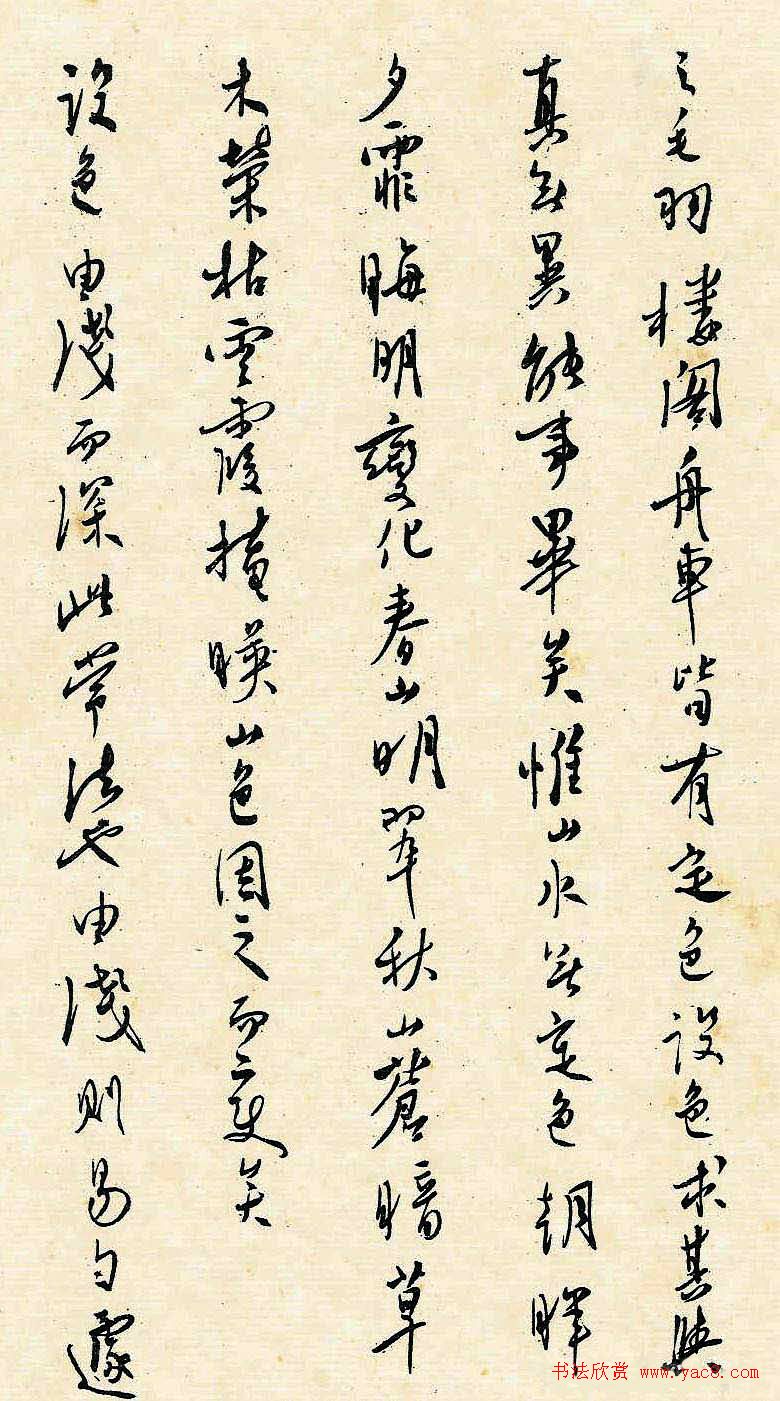 之毛羽樓閣舟車皆有定色設色求其與
真無異能事畢矣惟山水無定色朝暉
夕霏晦明變化春山明翠秋山蒼暗草
木榮枯雲霞掩暎山色因之而變矣
設色由淺而深此常法也由淺則易勻遽
书法欣赏 www.yac8.com